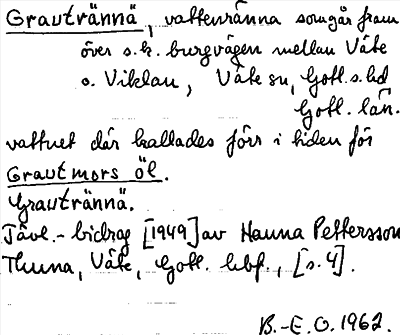 Grautrännä, vattenränna som går fram
över s.k. burgvägen mellan Väte
o. Viklau, Väte sn, Gotl. s. hd
Gotl. län.
vattnet där kallades förr i tiden för
Grautmors öl.
Grautrännä.
Tävl.-bidrag [1949] av Hanna Pettersson
Thuna, Väte, Gotl. hbf., [s. 4].
B.-E. O. 1962.